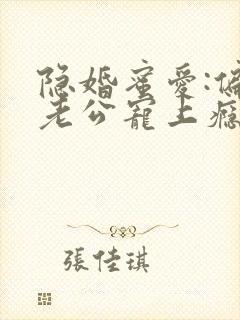 隐婚蜜爱:偏
老公寵上瘾
張佳琪